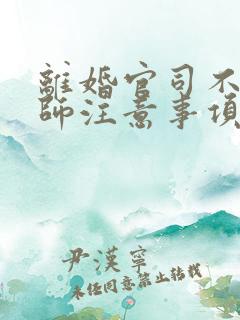 離婚官司不
師注意事項
尹漢寧
未经同意禁止转载